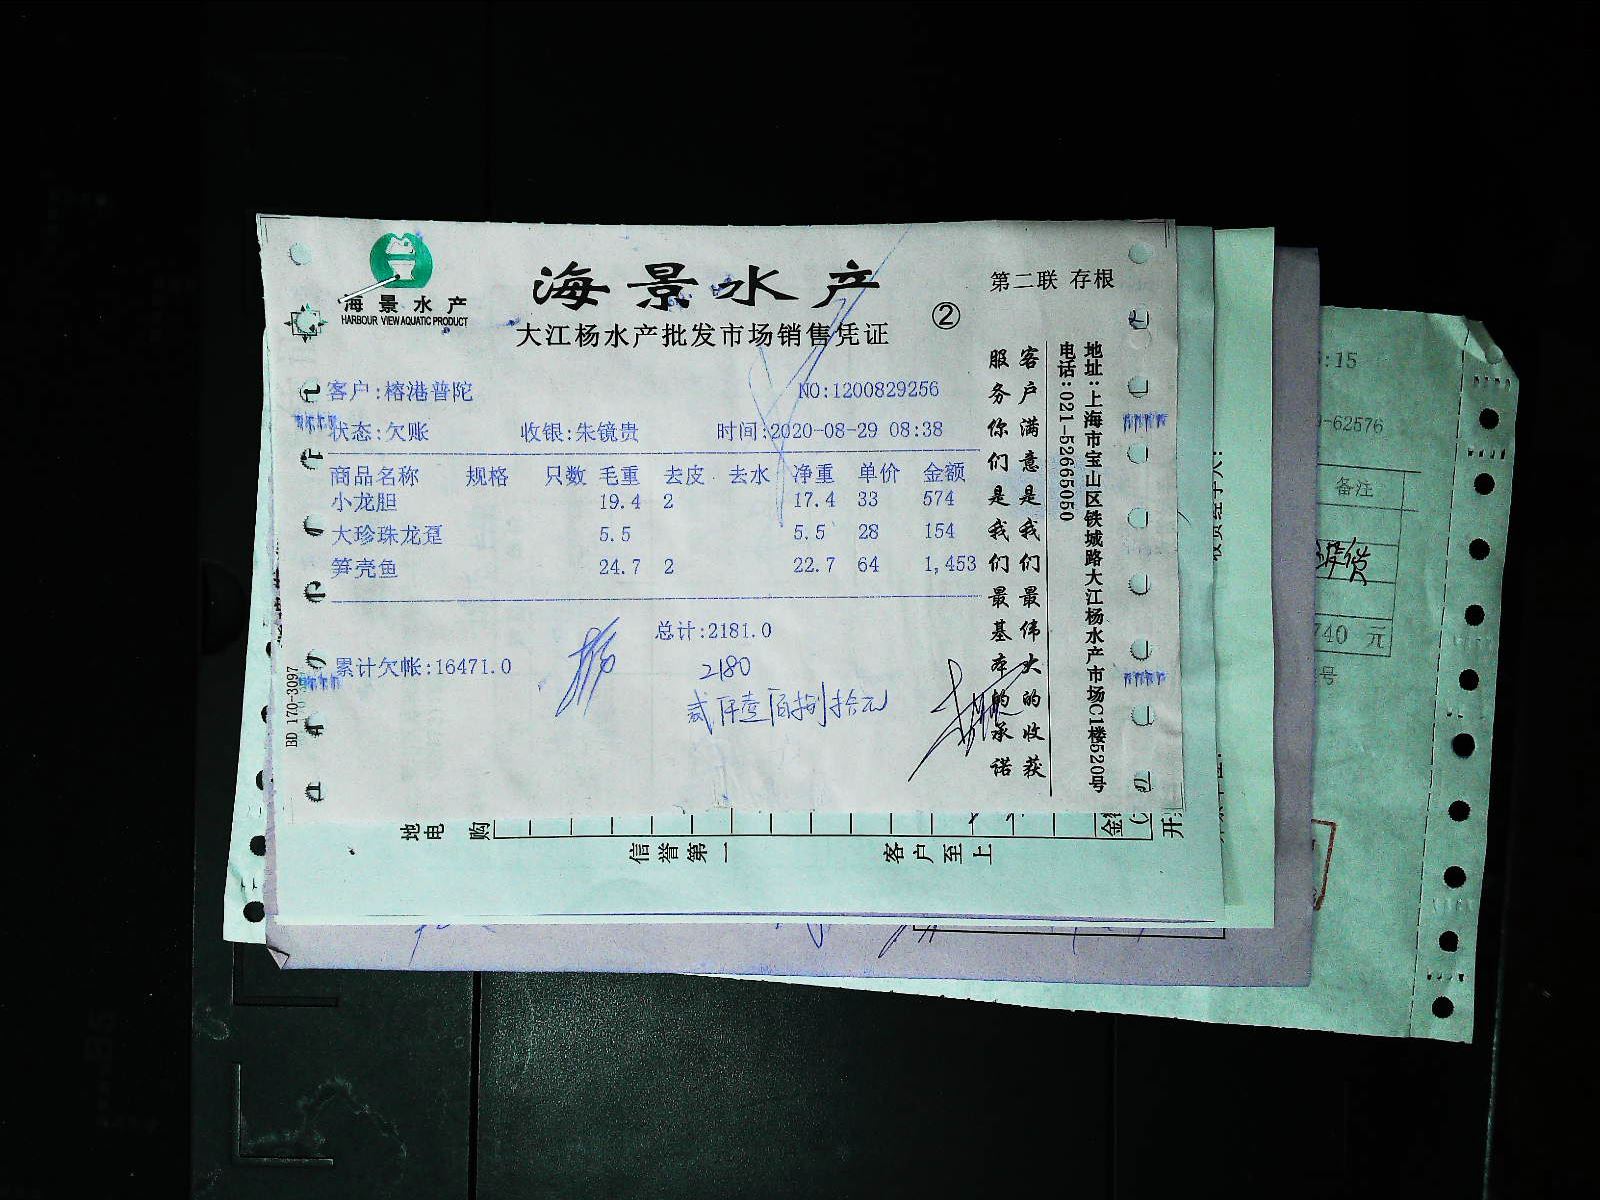 海景水产
HARBOUR VIEW AQUATIC PRODUCT
海景水产
第二联 存根
大江杨水产批发市场销售凭证
②
客户:榕港普陀
NO:1200829256
状态:欠账 收银:朱镜贵 时间:2020-08-29 08:38
商品名称 规格 只数 毛重 去皮 去水 净重 单价 金额
小龙胆 19.4 2 17.4 33 574
大珍珠龙趸 5.5 5.5 28 154
笋壳鱼 24.7 2 22.7 64 1,453
总计:2181.0
累计欠帐:16471.0
2180
贰仟壹佰捌拾元
客户满意是我们最伟大的收获
服务你们是我们最基本的承诺
地址:上海市宝山区铁城路大江杨水产市场C1楼520号
电话:021-52665050
BD 170-3097
地
电
购
金
开
信誉第一
客户至上
:15
-62576
备注
740 元
号